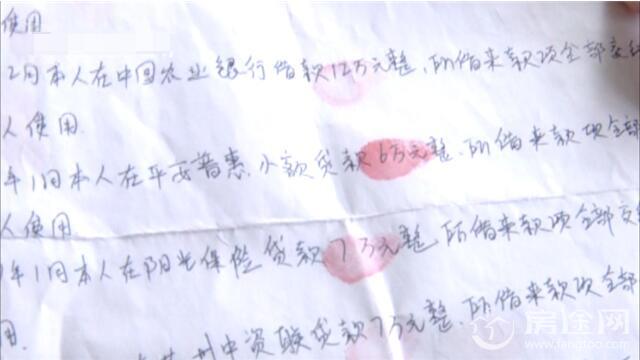 使用
2月本人在中国农业银行借款12万元整,所借来款项全部交
人使用.
年1月本人在平安普惠.小额贷款6万元整.所借来款项全部
人使用.
年1月本人在阳光保险贷款7万元整,所借来款项全部交
用.
州中资联贷款7万元整.所借来款项全部
房途网
www.fangtoo.com